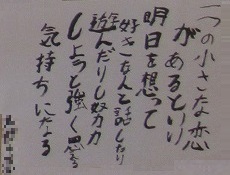 一つの小さな恋
があるとり
明日を想って
好きな人と話したり
遊んだりし努力
しようと強く思える
気持ちになる